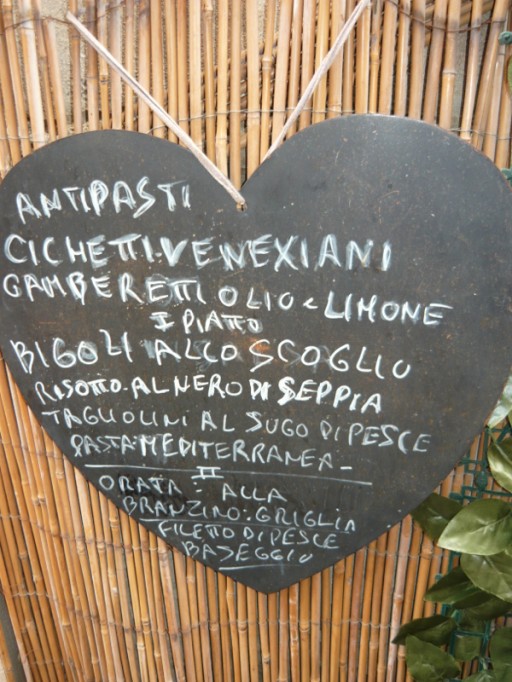 ANTIPASTI
CICHETTI.VENEXIANI
GAMBERETTI OLIO e LIMONE
I PIATTO
BIGOLI ALLO SCOGLIO
RISOTTO.AL NERO DI SEPPIA
TAGLIOLINI AL SUGO DI PESCE
PASTA MEDITERRANEA-
II
ORATA - ALLA
BRANZINO: GRIGLIA
FILETTO DI PESCE
BASEGGIO